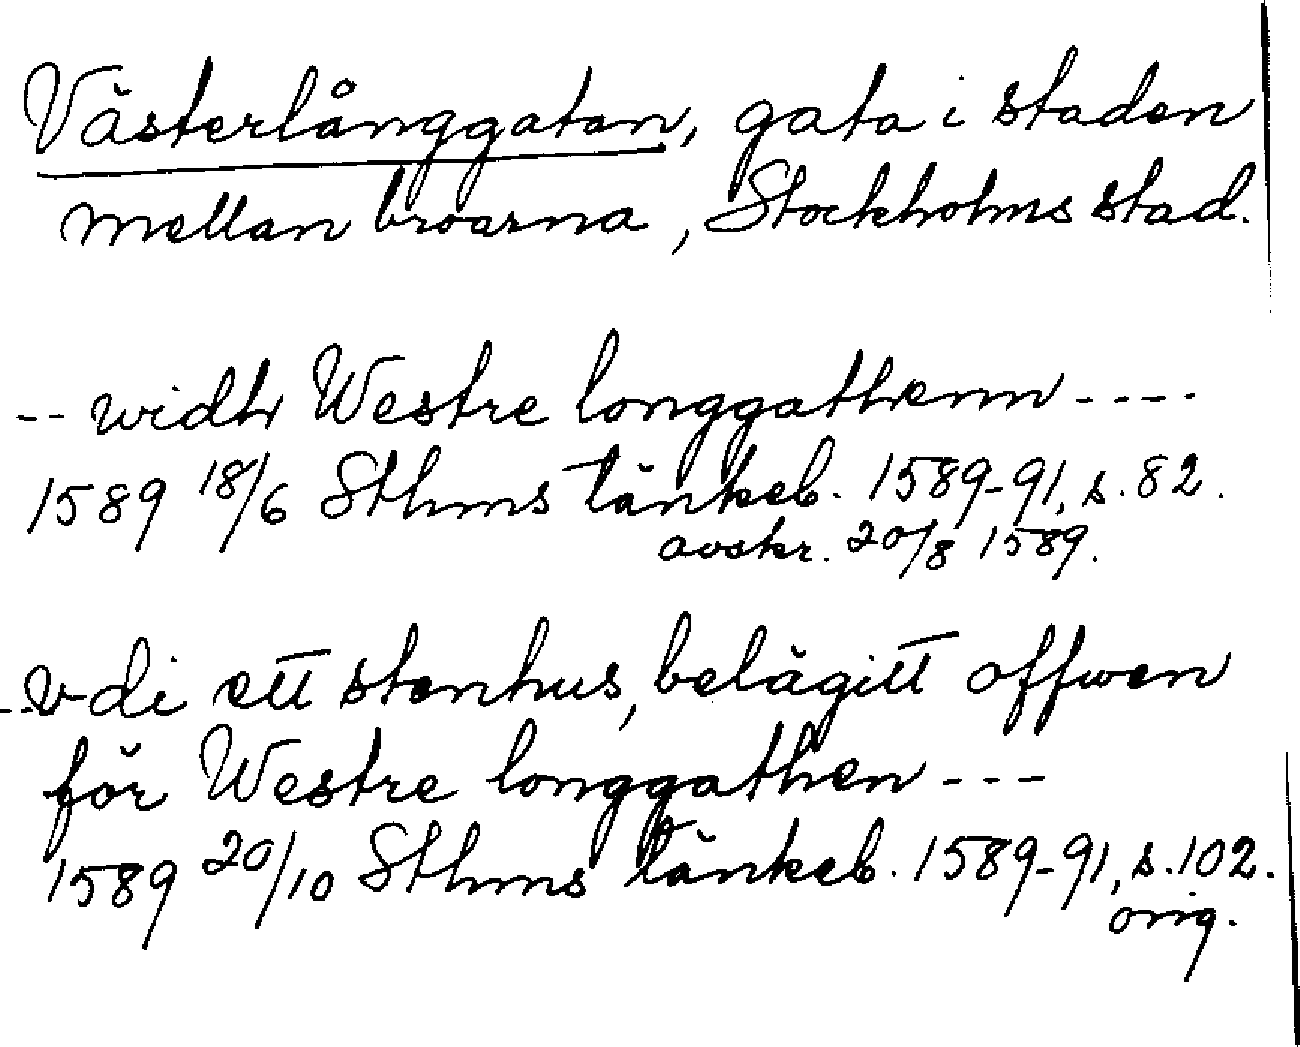 Västerlånggatan, gata i staden
mellan broarna, Stockholms stad.
-- widh Westre longgathenn ----
1589 18/6 Sthms tänkeb. 1589-91, s. 82.
avskr. 20/8 1589.
-- vdi ett stenhus, belägitt offwen
för Westre longgathen ---
1589 20/10 Sthms tänkeb. 1589-91, s. 102.
orig.